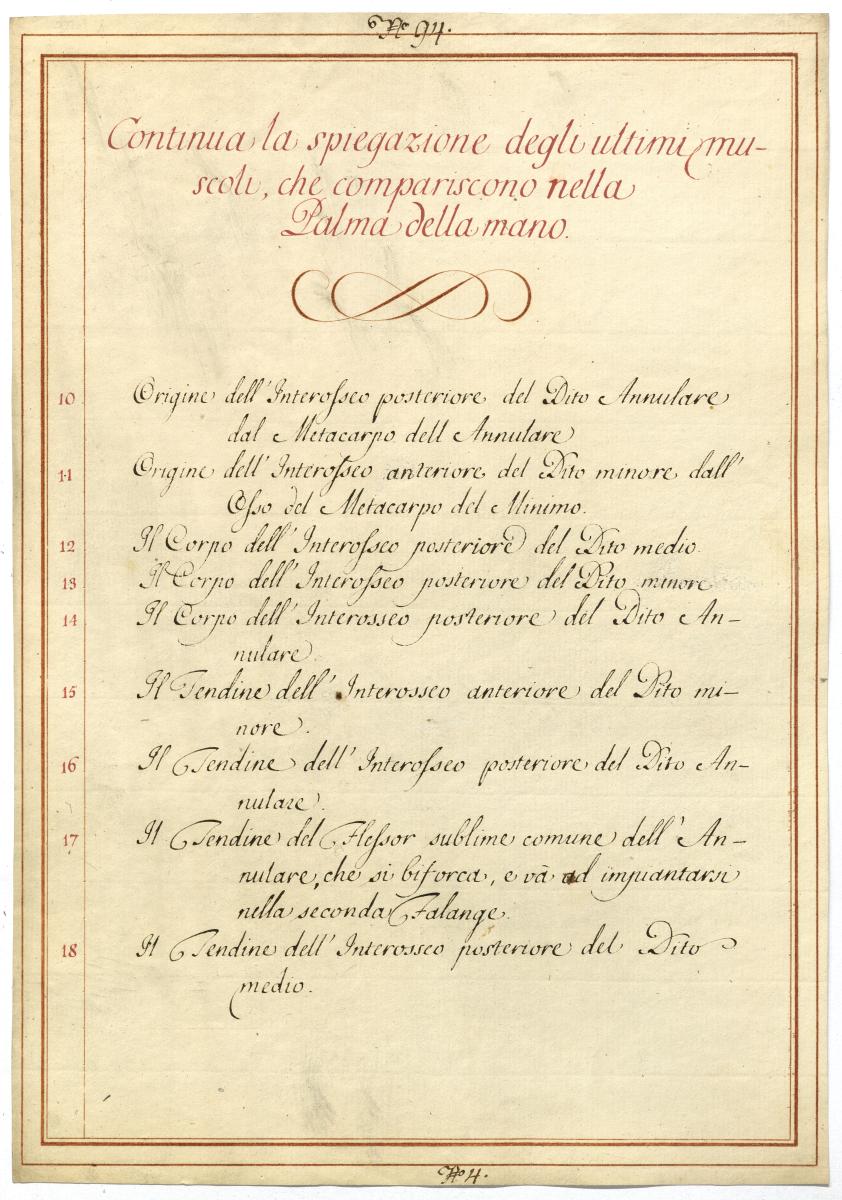 No 94.
Continua la spiegazione degli ultimi mu-
scoli, che compariscono nella
Palma della mano.
10 Origine dell' Interosseo posteriore del Dito Annulare
dal Metacarpo dell Annulare
11 Origine dell' Interosseo anteriore del Dito minore dall'
Osso del Metacarpo del Minimo.
12 Il Corpo dell' Interosseo posteriore del Dito medio
13 Il Corpo dell' Interosseo posteriore del Dito minore
14 Il Corpo dell' Interosseo posteriore del Dito An-
nulare.
15 Il Tendine dell' Interosseo anteriore del Dito mi-
nore.
16 Il Tendine dell' Interosseo posteriore del Dito An-
nulare.
17 Il Tendine del Flessor sublime comune dell' An-
nulare, che si biforca, e và ad impiantarsi
nella seconda Falange.
18 Il Tendine dell' Interosseo posteriore del Dito
medio.
No 4.